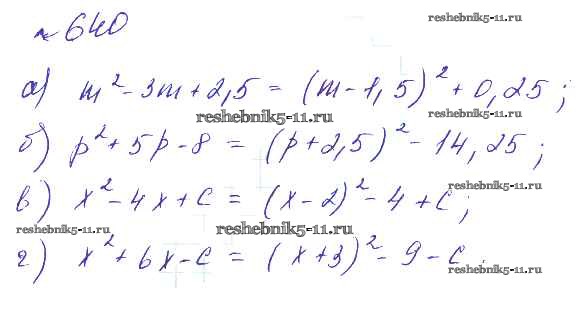 № 640
reshebnik5-11.ru
а) m² - 3m + 2,5 = (m - 1,5)² + 0,25;
reshebnik5-11.ru
reshebnik5-11.ru
б) p² + 5p - 8 = (p + 2,5)² - 14,25;
reshebnik5-11.ru
в) x² - 4x + c = (x - 2)² - 4 + c;
reshebnik5-11.ru
reshebnik5-11.ru
г) x² + 6x - c = (x + 3)² - 9 - c.
reshebnik5-11.ru